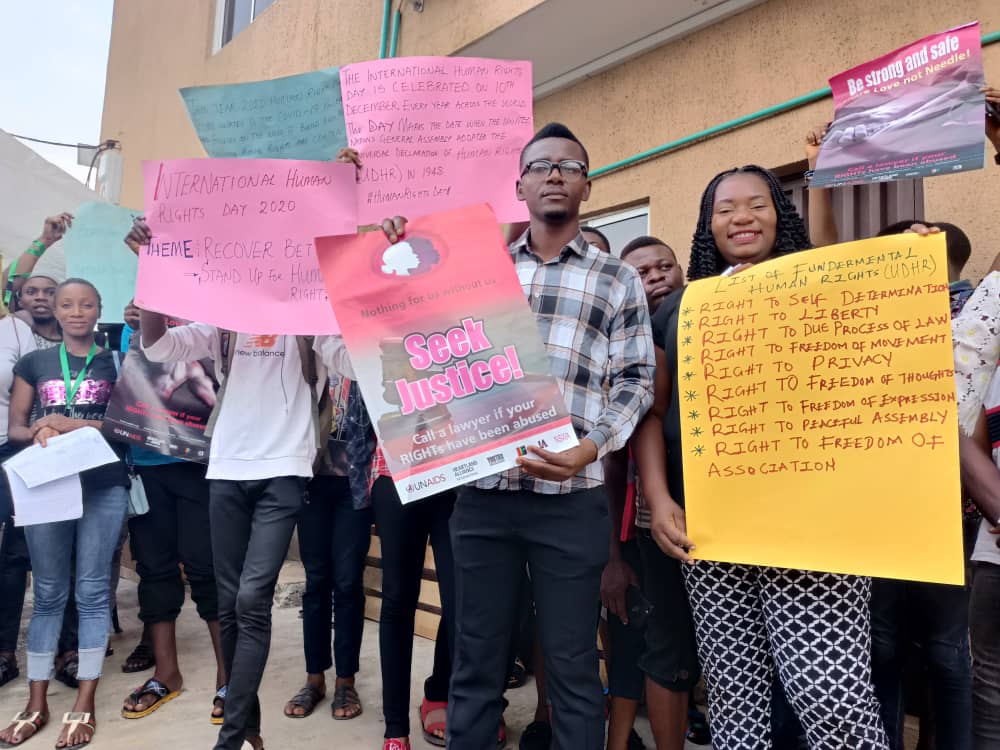 THIS YEAR 2020 HUMAN RIGHTS
THE INTERNATIONAL HUMAN RIGHTS
DAY IS CELEBRATED ON 10TH
DECEMBER EVERY YEAR ACROSS THE WORLD
THE DAY MARKS THE DATE WHEN THE UNITED
NATIONS GENERAL ASSEMBLY ADOPTED THE
UNIVERSAL DECLARATION OF HUMAN RIGHTS
(UDHR) IN 1948.
#HUMANRIGHTSDAY
INTERNATIONAL HUMAN
RIGHTS DAY 2020
THEME: RECOVER BET
STAND UP FOR HUM
RIGHT,
Nothing for us without us
Seek
Justice!
Call a lawyer if your
RIGHTs have been abused
UNAIDS
HEARTLAND
ALLIANCE
new balance
Call a lawyer if your
RIGHTs have been abused
UNAIDS
Be strong and safe
Love not Needle!
Call a lawyer if your
RIGHTs have been abused
LIST OF FUNDERMENTAL
HUMAN RIGHTS (UDHR)
* RIGHT TO SELF DETERMINATION
* RIGHT TO LIBERTY
* RIGHT TO DUE PROCESS OF LAW
* RIGHT TO FREEDOM OF MOVEMENT
* RIGHT TO PRIVACY
* RIGHT TO FREEDOM OF THOUGHTS
* RIGHT TO FREEDOM OF EXPRESSION
* RIGHT TO PEACEFUL ASSEMBLY
* RIGHT TO FREEDOM OF
ASSOCIATION